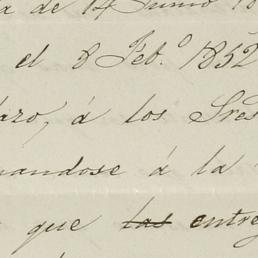 a de 14 Junio 18
el 8 Feb.º 1852
azo, á los Sres
nandose á la
que las entreg